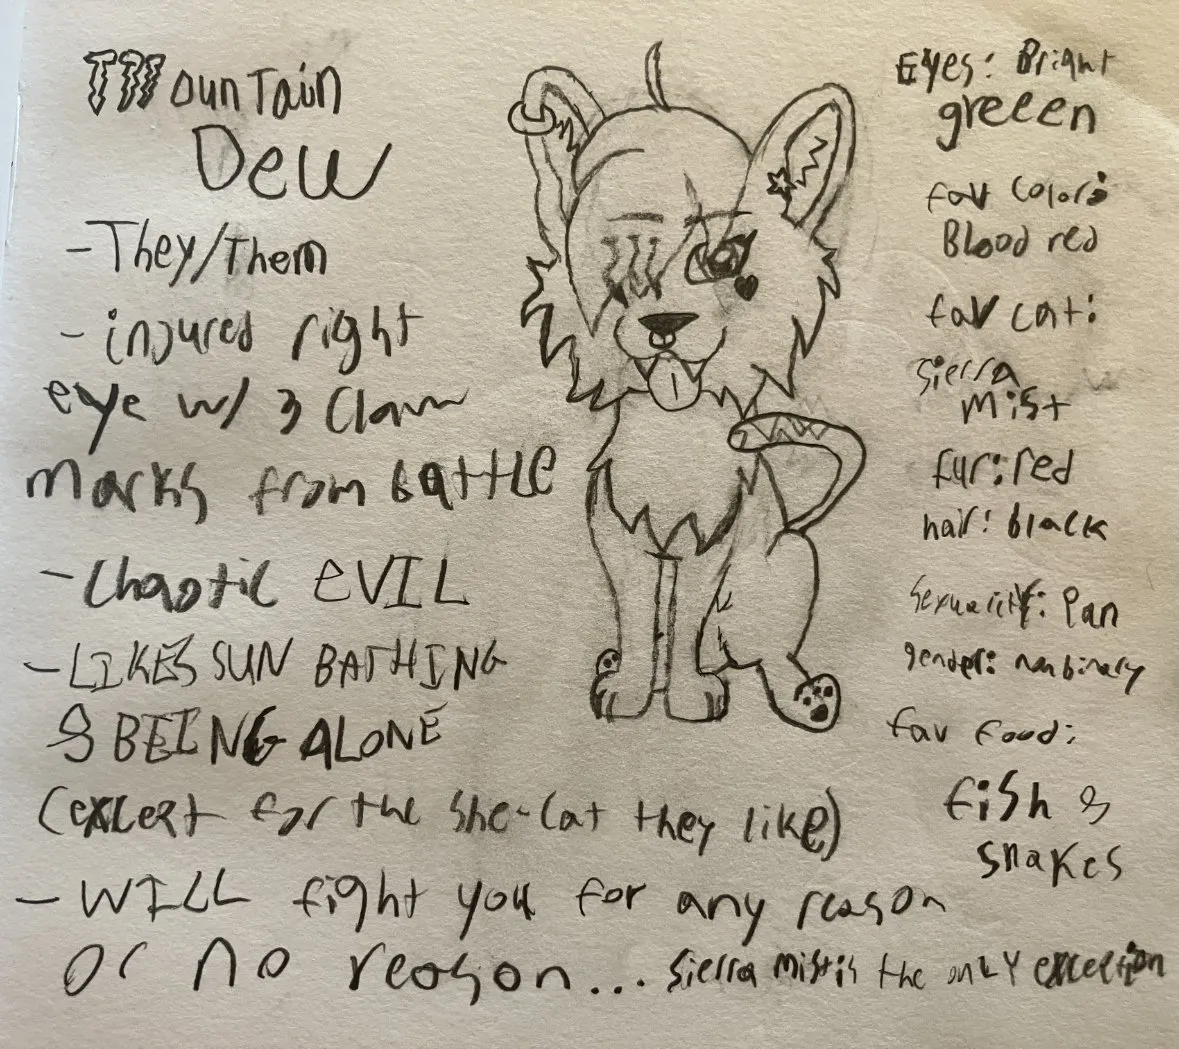 Mountain
Dew
- They/Them
- injured right
eye w/ 3 Claw
marks from battle
- Chaotic EVIL
- LIKES SUN BATHING
& BEING ALONE
(except for the she-cat they like)
- WILL fight you for any reason
or no reason... Sierra mist is the onLY exception
Eyes: Bright
greeen
fav color:
Blood red
fav cat:
sierra
mist
fur: red
hair: black
Sexuality: Pan
gender: nonbinary
fav food:
fish &
snakes